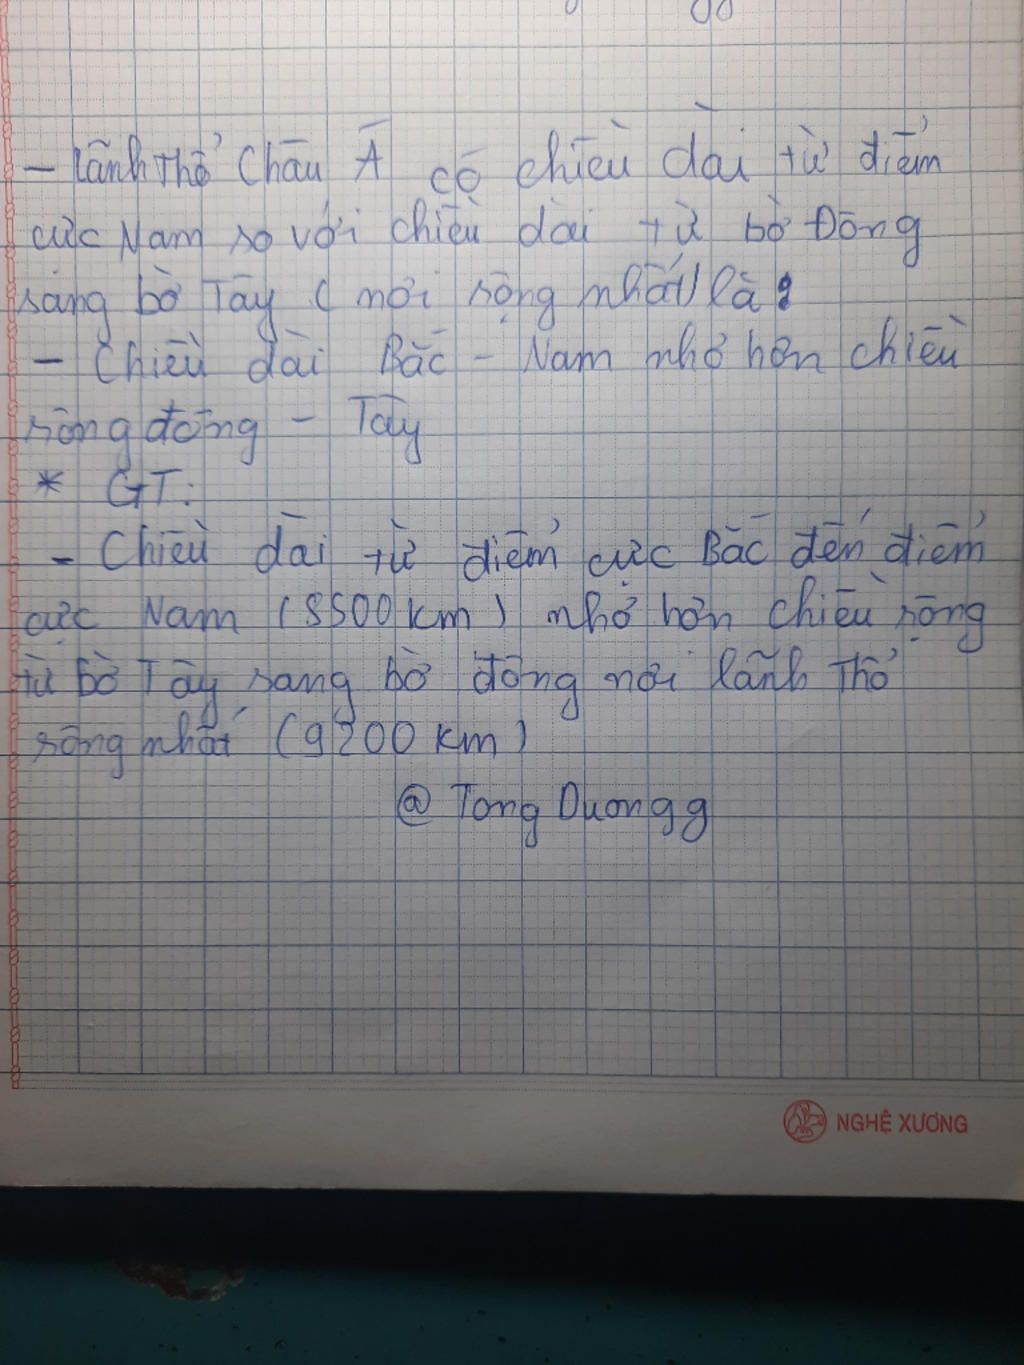 - Lãnh thổ Châu Á có chiều dài từ điểm
cực Nam so với chiều dài từ bờ Đông
sang bờ Tây ( nơi rộng nhất) là?
- Chiều dài Bắc - Nam nhỏ hơn chiều
rộng đông - Tây
* GT:
- Chiều dài từ điểm cực Bắc đến điểm
cực Nam (8500 km) nhỏ hơn chiều rộng
từ bờ Tây sang bờ đông nơi lãnh thổ
rộng nhất (9200 km)
@ Tong Duongg
NGHỆ XƯƠNG